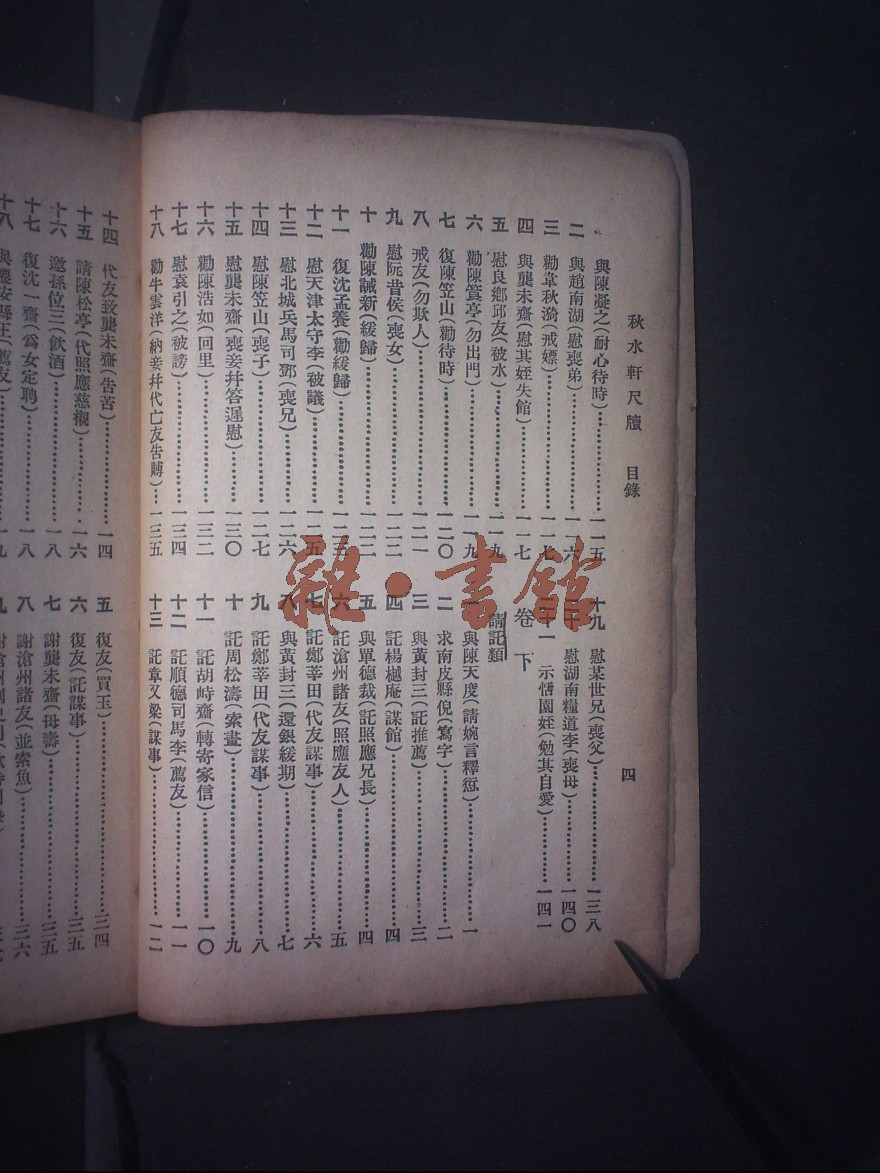 秋水軒尺牘　目錄
四
一　與陳凝之(耐心待時)……一一五
二　與趙南湖(慰喪弟)……一一六
三　勸韋秋漪(戒嫖)……一一七
四　與龔未齋(慰其姪失館)……一一七
五　慰良鄉邱友(被水)……一一九
六　勸陳簣亭(勿出門)……一一九
七　復陳笠山(勸待時)……一二〇
八　戒友(勿欺人)……一二一
九　慰阮昔侯(喪女)……一二二
十　勸陳誠新(緩歸)……一二二
十一　復沈孟養(勸緩歸)……一二三
十二　慰天津太守李(被議)……一二五
十三　慰北城兵馬司鄧(喪兄)……一二六
十四　慰陳笠山(喪子)……一二七
十五　慰龔未齋(喪妾幷答遲慰)……一三〇
十六　勸陳浩如(回里)……一三二
十七　慰袁引之(被謗)……一三四
十八　勸牛雲洋(納妾幷代亡友告賻)……一三五
十九　慰某世兄(喪父)……一三八
二十　慰湖南糧道李(喪母)……一四〇
二十一　示恬園姪(勉其自愛)……一四一
卷下
請託類
一　與陳天度(請婉言釋愆)……一
二　求南皮縣倪(寫字)……二
三　與黃封三(託推薦)……三
四　託楊樾庵(謀館)……四
五　與單德栽(託照應兄長)……四
六　託滄州諸友(照應友人)……五
七　託鄭莘田(代友謀事)……六
八　與黃封三(還銀緩期)……七
九　託鄭莘田(代友謀事)……八
十　託周松濤(索畫)……九
十一　託胡峙齋(轉寄家信)……一〇
十二　託順德司馬李(薦友)……一一
十三　託章又梁(謀事)……一二
十四　代友致龔未齋(告苦)……一四
十五　請陳松亭(代照應慈櫬)……一六
十六　邀孫位三(飲酒)……一八
十七　復沈一齋(爲女定聘)……一八
十八　與遷安縣汪(薦友)……一九
五　復友(買玉)……三四
六　復友(託謀事)……三五
七　謝龔未齋(母壽)……三五
八　謝滄州諸友(並索魚)……三六
九　謝滄州
雜·書館